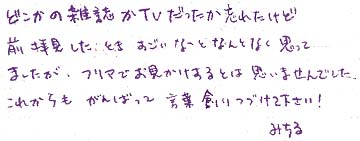 どこかの雑誌かTVだったか忘れたけど
前拝見したときすごいなーとなんとなく思って
ましたが、フリマでお見かけするとは思いませんでした。
これからもがんばって言葉創りつづけて下さい!
みちる